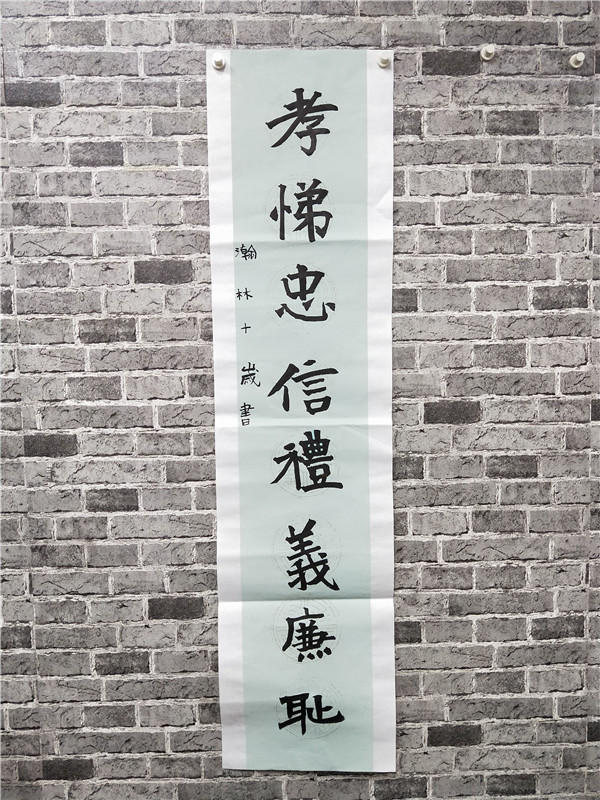 孝悌忠信禮義廉耻
瀚林十歲書